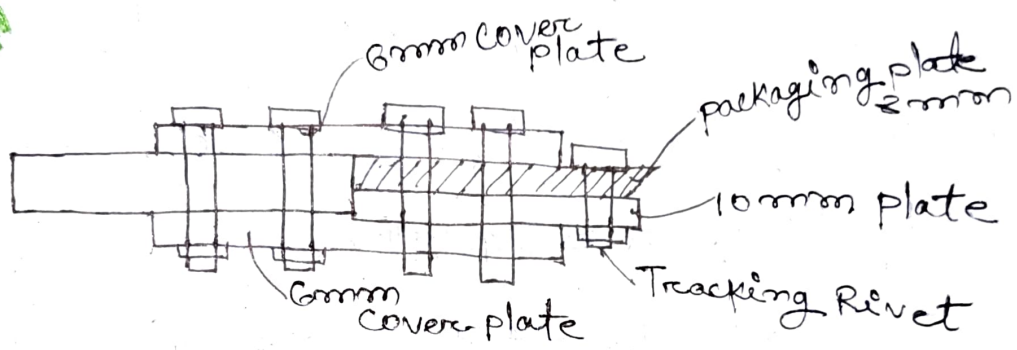 6mm cover
plate
packaging plate
8mm
10mm plate
Tracking Rivet
6mm
cover plate